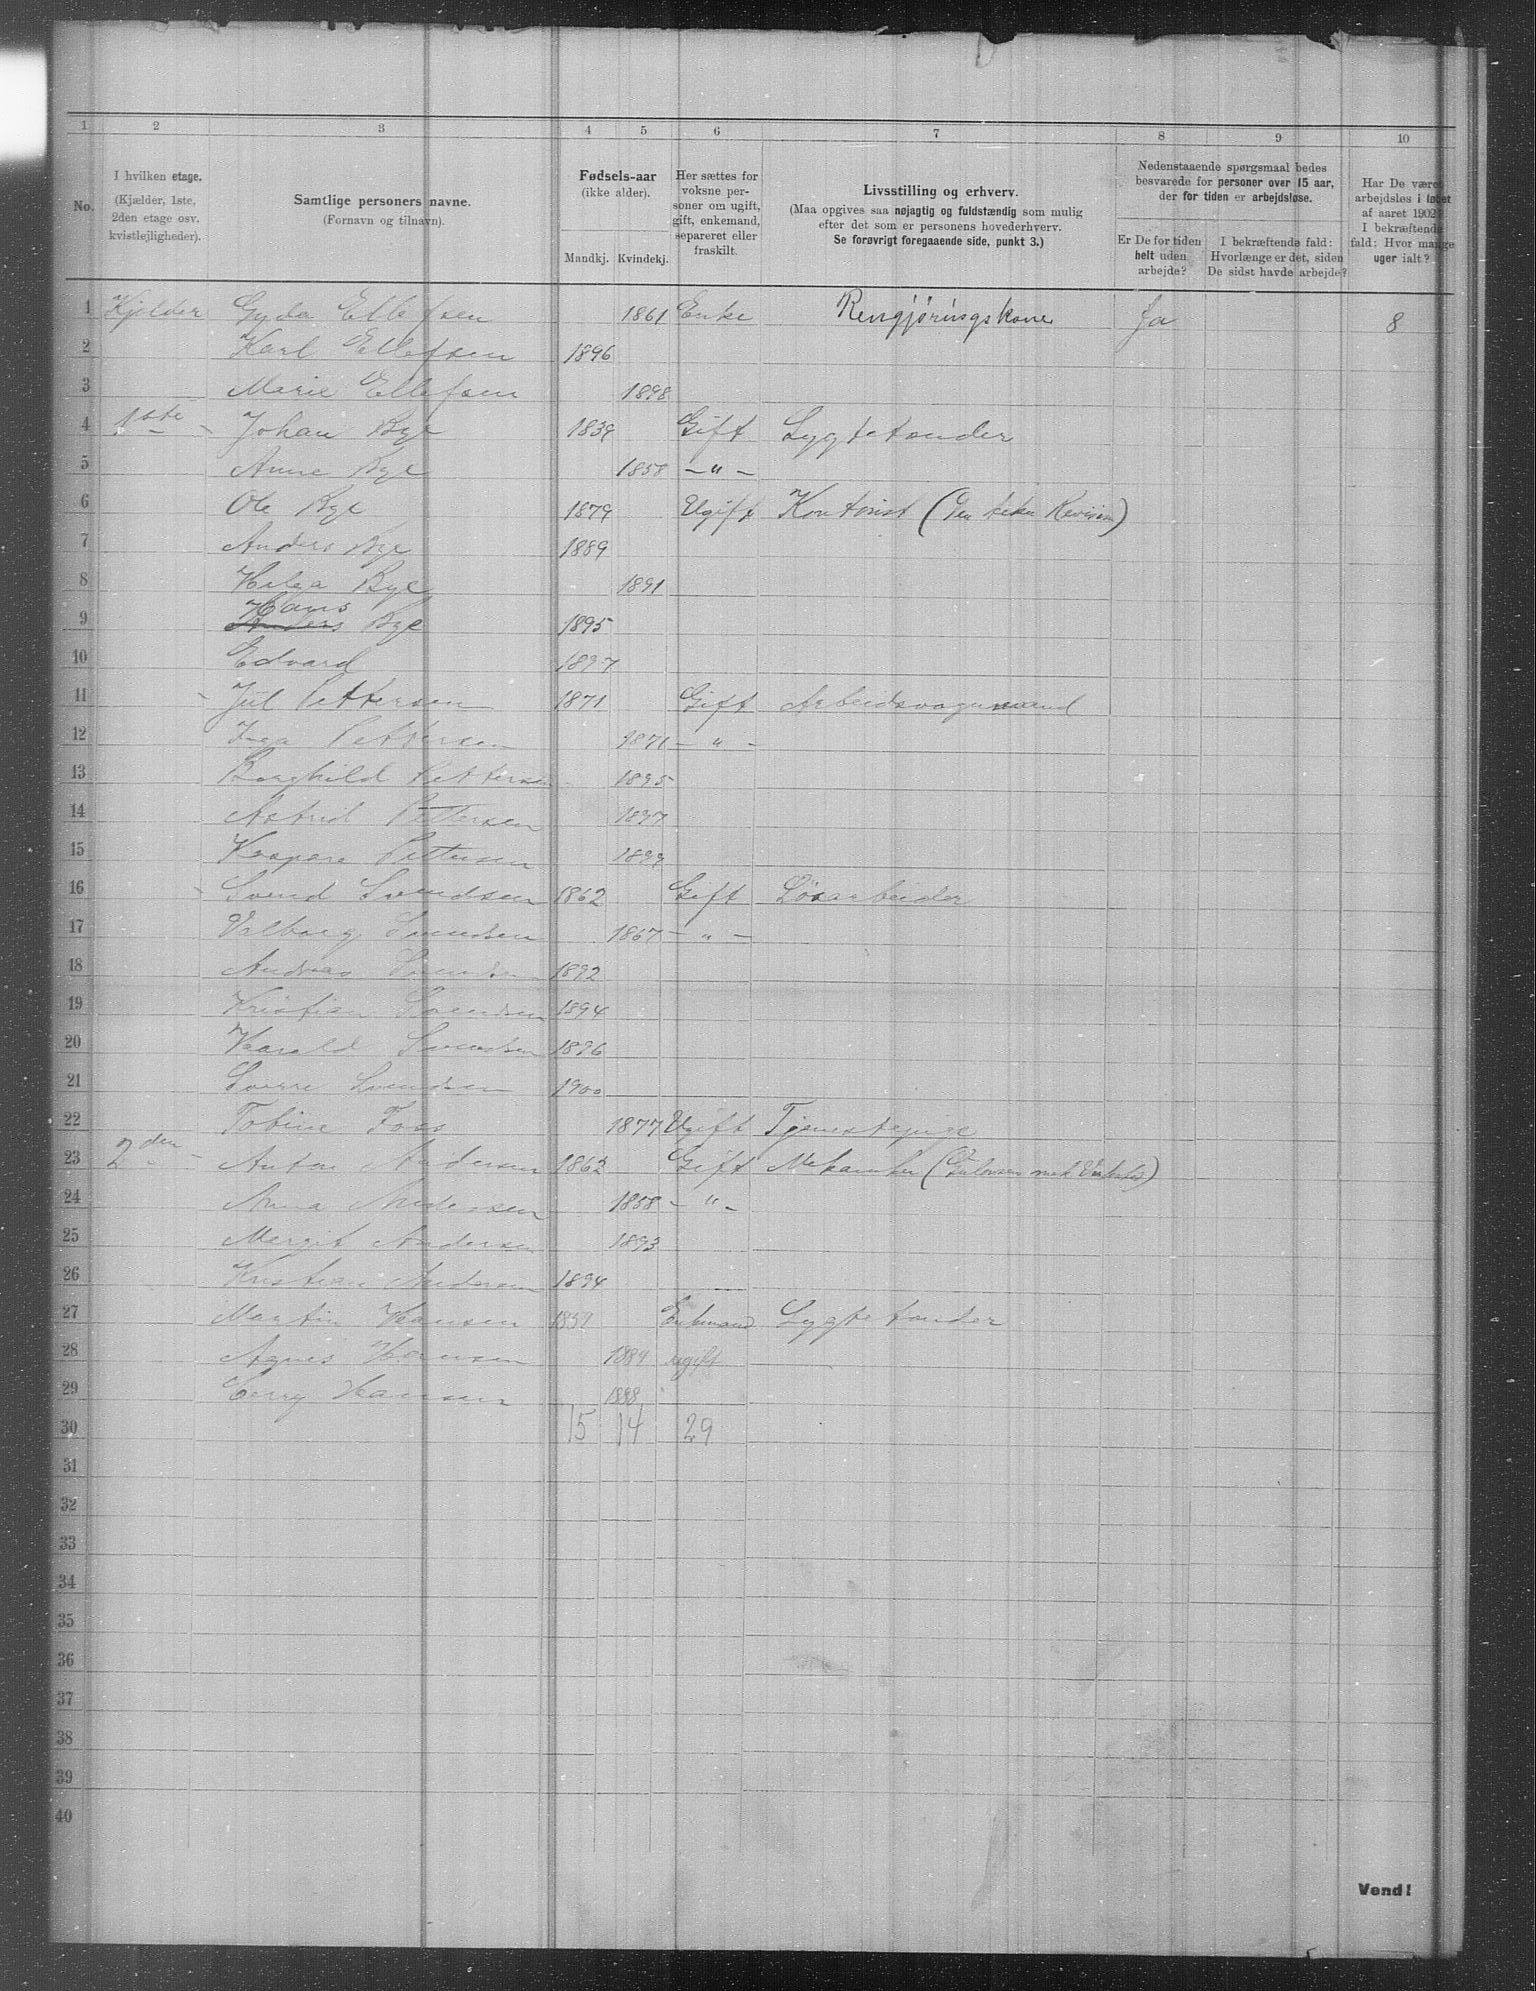 1 2 3 4 5 6 7 8 9 10
No.
I hvilken etage.
(Kjælder, 1ste,
2den etage osv.
kvistlejligheder).
Samtlige personers navne.
(Fornavn og tilnavn).
Fødsels-aar
(ikke alder).
Mandkj. Kvindekj.
Her sættes for
voksne per-
soner om ugift,
gift, enkemand,
separeret eller
fraskilt.
Livsstilling og erhverv.
(Maa opgives saa nøjagtig og fuldstændig som mulig
efter det som er personens hovederhverv.
Se forøvrigt foregaaende side, punkt 3.)
Nedenstaaende spørgsmaal bedes
besvarede for personer over 15 aar,
der for tiden er arbejdsløse.
Er De for tiden
helt uden
arbejde?
I bekræftende fald:
Hvorlænge er det, siden
De sidst havde arbejde?
Har De været
arbejdsløs i løbet
af aaret 1902?
I bekræftende
fald: Hvor mange
uger ialt?
1 Kjelder Gyda Ellefsen 1861 Enke Rengjøringskone Ja 8
2 Karl Ellefsen 1896
3 Marie Ellefsen 1898
4 1ste Johan Bye 1839 Gift Lygtetænder
5 Anne Bye 1858 — " —
6 Ole Bye 1879 Ugift Kontorist (Den Revision)
7 Anders Bye 1889
8 Helga Bye 1891
9 Hans Anders Bye 1895
10 Edvard 1897
11 Jul Pettersen 1871 Gift Arbeidsvognmand
12 Inga Pettersen 1871 — " —
13 Borghild Pettersen 1895
14 Astrid Pettersen 1897
15 Kaspara Pettersen 1899
16 Svend Svendsen 1862 Gift Løsarbeider
17 Valborg Svendsen 1867 — " —
18 Andreas Svendsen 1892
19 Kristian Svendsen 1894
20 Harald Svendsen 1896
21 Sverre Svendsen 1900
22 Tobine Foss 1877 Ugift Tjenestepige
23 2den Anton Andersen 1862 Gift Mekaniker (Gulowsen mek Værksted)
24 Anna Andersen 1858 — " —
25 Margit Andersen 1893
26 Kristian Andersen 1894
27 Martin Hansen 1859 Enkmand Lygtetænder
28 Agnes Hansen 1889 ugift
29 Hansen 1898
30 15 14 29
31
32
33
34
35
36
37
38
39
40
Vend!